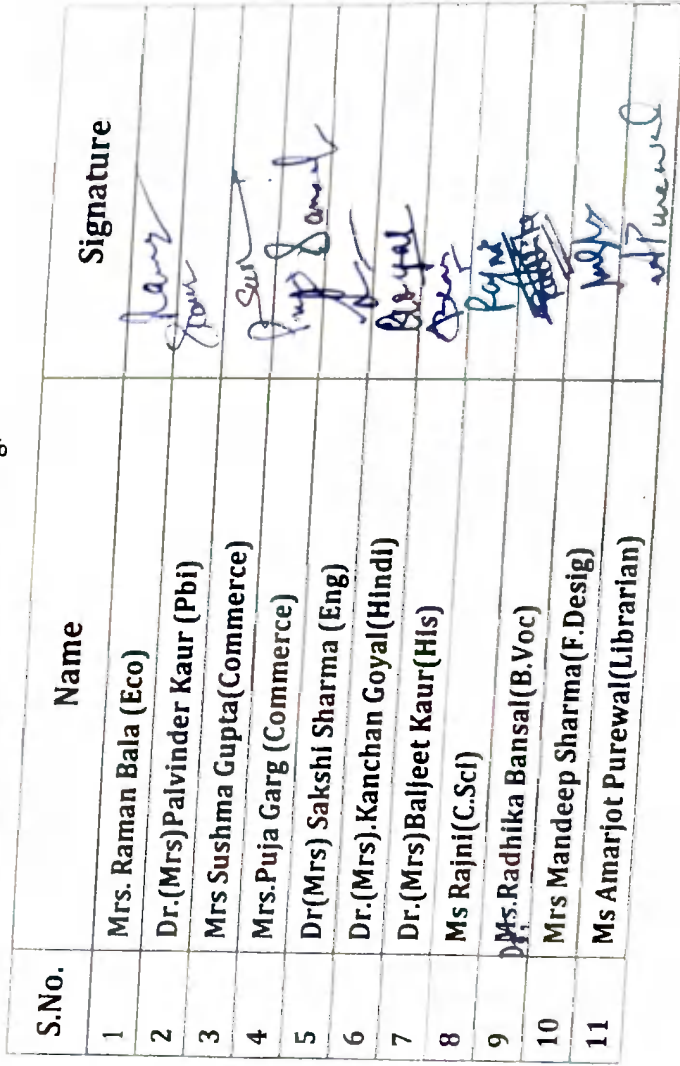 S.No. Name Signature
1 Mrs. Raman Bala (Eco)
2 Dr.(Mrs)Palvinder Kaur (Pbi)
3 Mrs Sushma Gupta(Commerce)
4 Mrs.Puja Garg (Commerce)
5 Dr(Mrs) Sakshi Sharma (Eng)
6 Dr.(Mrs).Kanchan Goyal(Hindi)
7 Dr.(Mrs)Baljeet Kaur(His) Goyal
8 Ms Rajni(C.Sci)
9 Dr. Ms.Radhika Bansal(B.Voc) Rajni
10 Mrs Mandeep Sharma(F.Desig)
11 Ms Amarjot Purewal(Librarian) Purewal